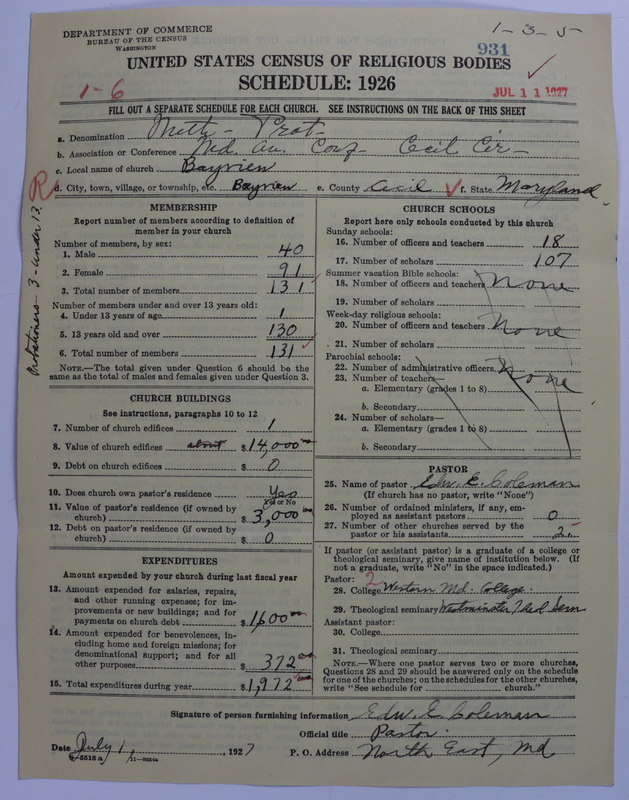 DEPARTMENT OF COMMERCE
BUREAU OF THE CENSUS
WASHINGTON
1-3-5-
931
UNITED STATES CENSUS OF RELIGIOUS BODIES
SCHEDULE: 1926
1-6
JUL 11 1927
FILL OUT A SEPARATE SCHEDULE FOR EACH CHURCH. SEE INSTRUCTIONS ON THE BACK OF THIS SHEET
a. Denomination Meth- Prot-
b. Association or Conference Md. An. Conf- Cecil Cir-
c. Local name of church Bayview
R
d. City, town, village, or township, etc. Bayview e. County Cecil f. State Maryland
Probationers- 3-under 13.
MEMBERSHIP
Report number of members according to definition of
member in your church
Number of members, by sex:
1. Male 40
2. Female 91
3. Total number of members 131
Number of members under and over 13 years old:
4. Under 13 years of age 1
5. 13 years old and over 130
6. Total number of members 131
NOTE.—The total given under Question 6 should be
same as the total of males and females given under Question 3.
CHURCH BUILDINGS
See instructions, paragraphs 10 to 12
7. Number of church edifices 1
8. Value of church edifices about $14,000 00
9. Debt on church edifices $ 0
10. Does church own pastor's residence Yes
Yes or No
11. Value of pastor's residence (if owned by
church) $3,000 00
12. Debt on pastor's residence (if owned by
church) $ 0
EXPENDITURES
Amount expended by your church during last fiscal year
13. Amount expended for salaries, repairs,
and other running expenses; for im-
provements or new buildings; and for
payments on church debt $1600 00
14. Amount expended for benevolences, in-
cluding home and foreign missions; for
denominational support; and for all
other purposes $ 372
15. Total expenditures during year $1,972
CHURCH SCHOOLS
Report here only schools conducted by this church
Sunday schools:
16. Number of officers and teachers 18
17. Number of scholars 107
Summer vacation Bible schools:
18. Number of officers and teachers None
19. Number of scholars
Week-day religious schools:
20. Number of officers and teachers None
21. Number of scholars
Parochial schools:
22. Number of administrative officers None
23. Number of teachers—
a. Elementary (grades 1 to 8)
b. Secondary
24. Number of scholars—
a. Elementary (grades 1 to 8)
b. Secondary
PASTOR
25. Name of pastor Edw. E. Coleman
(If church has no pastor, write "None")
26. Number of ordained ministers, if any, em-
ployed as assistant pastors 0
27. Number of other churches served by the
pastor or his assistants 2
If pastor (or assistant pastor) is a graduate of a college or
theological seminary, give name of institution below. (If
not a graduate, write "No" in the space indicated.)
Pastor: 2
28. College Western Md. College
29. Theological seminary Westminster Theol Sem
Assistant pastor:
30. College
31. Theological seminary
NOTE.—Where one pastor serves two or more churches,
Questions 28 and 29 should be answered only on the schedule
for one of the churches; on the schedules for the other churches,
write "See schedule for church."
Signature of person furnishing information Edw. E. Coleman
Official title Pastor.
Date July 1, 1927 P. O. Address North East, Md
8-5518 a 11-9654a